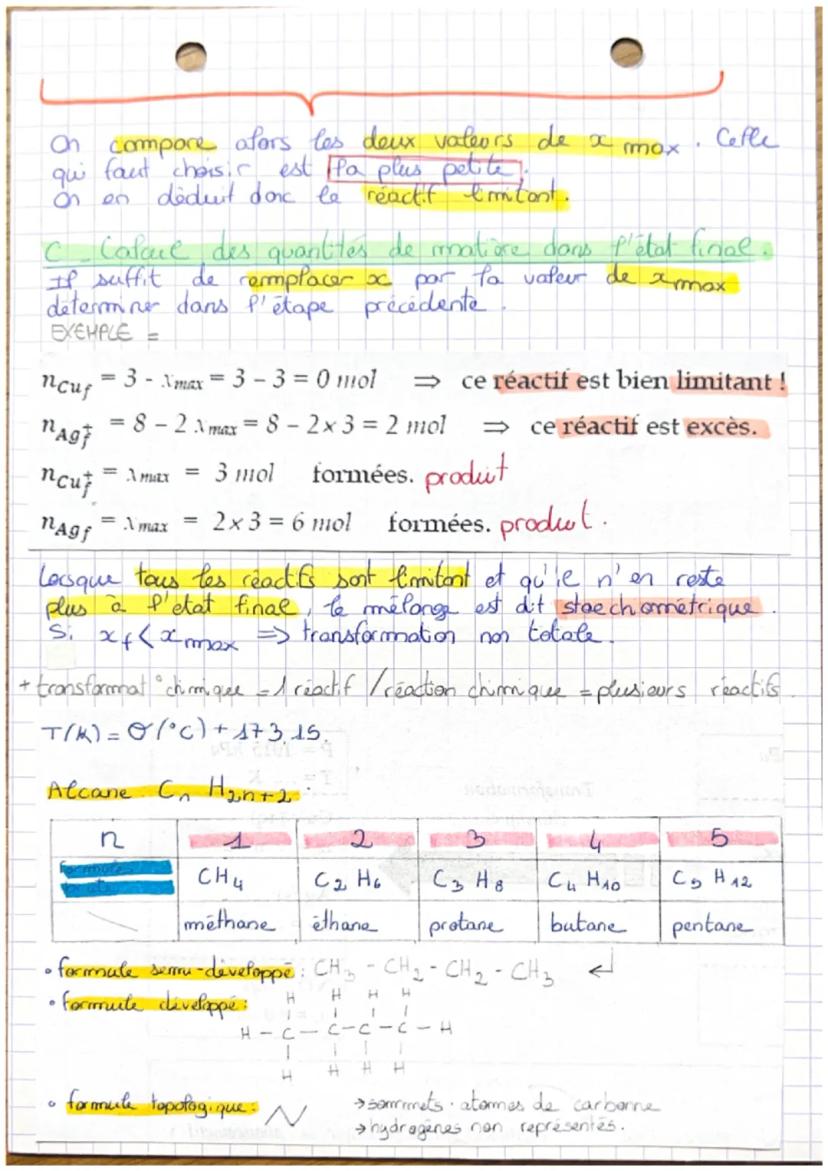 On compare alors les deux valeurs de x max. Celle
qui faut choisir est la plus petite.
On en déduit donc le réactif limitant.
C - Calcul des quantités de matière dans l'état final.
Il suffit de remplacer x par la valeur de x max
déterminer dans l'étape précédente.
EXEMPLE =
n Cu f = 3 - x max = 3 – 3 = 0 mol ⇒ ce réactif est bien limitant !
n Ag+ f = 8 – 2 x max = 8 – 2× 3 = 2 mol ⇒ ce réactif est excès.
n Cu+ f = x max = 3 mol formées. produit
n Ag f = x max = 2× 3 = 6 mol formées. produit.
Lorsque tous les réactifs sont limitant et qu'il n'en reste
plus à l'état final, le mélange est dit stoechiométrique.
Si xf < x max ⇒ transformation non totale.
+ transformat° chimique = 1 réactif / réaction chimique = plusieurs réactifs.
T(K) = θ(°C) + 173.15.
Alcane CnH2n+2 :
n 1 2 3 4 5
formules brute CH4 C2H6 C3H8 C4H10 C5H12
méthane éthane protane butane pentane
• formule semi-développé : CH3 - CH2 - CH2 - CH3 ↵
• formule développé :
H H H H
H - C - C - C - C - H
H H H H
• formule topologique : → sommets. atomes de carbonne
→ hydrogènes non représentés.